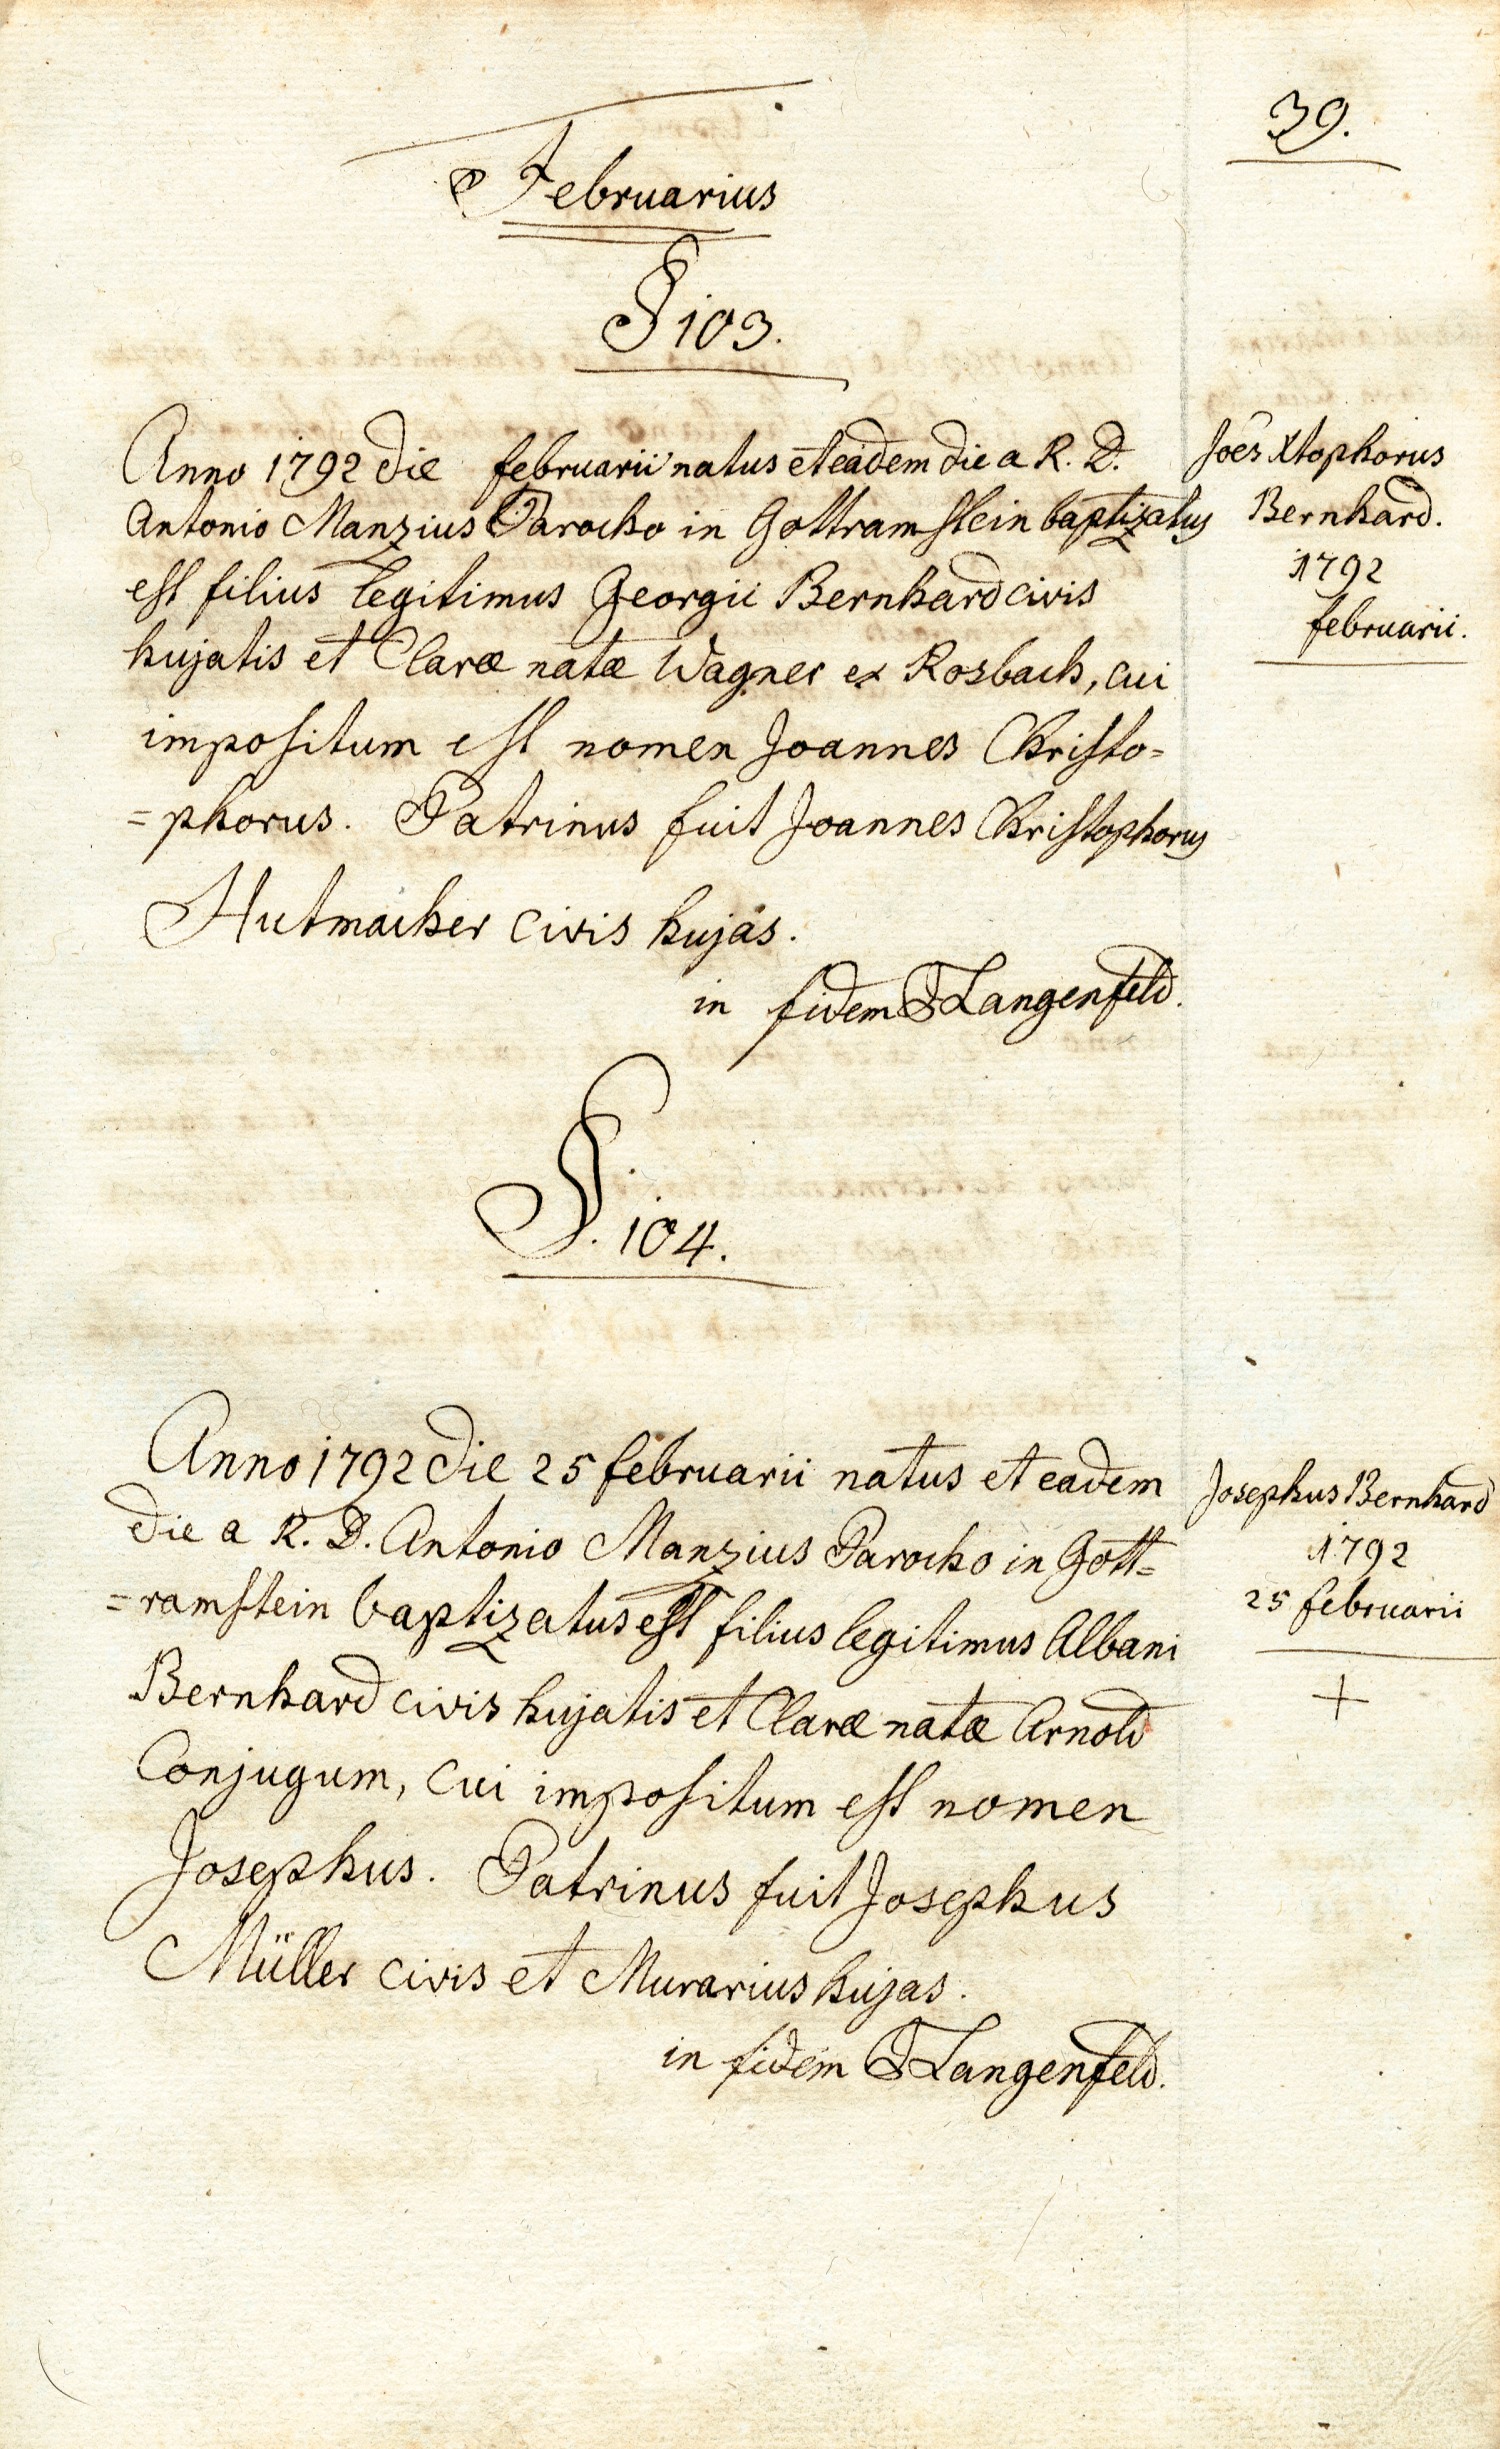 39.
Februarius
§ 103.
Anno 1792 die februarii natus et eadem die a R. D.
Antonio Manzius Parocho in Gottramstein baptizatus
est filius legitimus Georgii Bernhard civis
hujatis et Claræ natæ Wagner ex Rosbach, cui
impositum est nomen Joannes Christo=
=phorus. Patrinus fuit Joannes Christophorus
Hutmacher civis hujas.
in fidem F Langenfeld.
Joēs Xtophorus
Bernhard.
1792
februarii.
§. 104.
Anno 1792 die 25 februarii natus et eadem
die a R. D. Antonio Manzius Parocho in Gott=
=ramstein baptizatus est filius legitimus Albani
Bernhard civis hujatis et Claræ natæ Arnold
Conjugum, cui impositum est nomen
Josephus. Patrinus fuit Josephus
Müller civis et Murarius hujas.
in fidem F Langenfeld.
Josephus Bernhard
1792
25 februarii
+